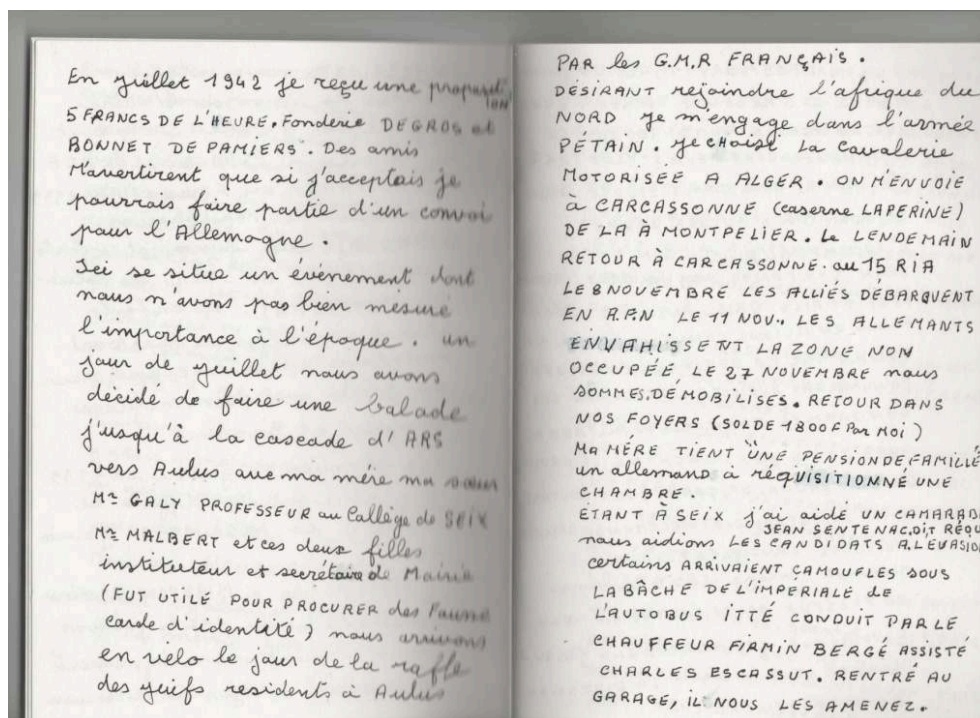 En juillet 1942 je reçu une proposit
ION
5 FRANCS DE L'HEURE. Fonderie DEGROS et
BONNET DE PAMIERS. Des amis
M'avertirent que si j'acceptais je
pourrais faire partie d'un convoi
pour l'Allemagne.
Ici se situe un événement dont
nous n'avons pas bien mesuré
l'importance à l'époque. un
jour de juillet nous avons
décidé de faire une balade
j'usqu'à la cascade d'ARS
vers Aulus avec ma mère ma sœur
Mr GALY PROFESSEUR au Collège de SEIX
Mr MALBERT et ces deux filles
instituteur et secrétaire de Mairie
(FUT UTILE POUR PROCURER des Fausse
carde d'identité) nous arrivons
en velo le jour de la rafle
des juifs residents à Aulus
PAR les G.M.R FRANÇAIS.
DÉSIRANT rejoindre l'afrique du
NORD je m'engage dans l'armée
PÉTAIN. je CHOISI La Cavalerie
MOTORISÉE A ALGER. ON M'ENVOIE
à CARCASSONNE (caserne LAPERINE)
DE LA À MONTPELIER. Le LENDEMAIN
RETOUR À CARCASSONNE. au 15 RIA
LE 8 NOVEMBRE LES ALLIÉS DÉBARQUENT
EN A.F.N LE 11 NOV.. LES ALLEMANTS
ENVAHISSENT LA ZONE NON
OCCUPÉE LE 27 NOVEMBRE nous
SOMMES DÉMOBILISES. RETOUR DANS
NOS FOYERS (SOLDE 1800 F Par MOI)
Ma MÉRE TIENT UNE PENSION DE FAMILLE
un allemand à réqUISITIONNÉ UNE
CHAMBRE.
ÉTANT À SEIX j'ai aidé UN CAMARADE
JEAN SENTENAC, DIT RÉQU
nous aidions LES CANDIDATS A L'EVASION
certains ARRIVAIENT CAMOUFLES SOUS
LA BÂCHE DE L'IMPÉRIALE de
L'AUTOBUS ITTÉ CONDUIT PAR LE
CHAUFFEUR FIRMIN BERGÉ ASSISTÉ
CHARLES ESCASSUT. RENTRÉ AU
GARAGE, IL NOUS LES AMENEZ.